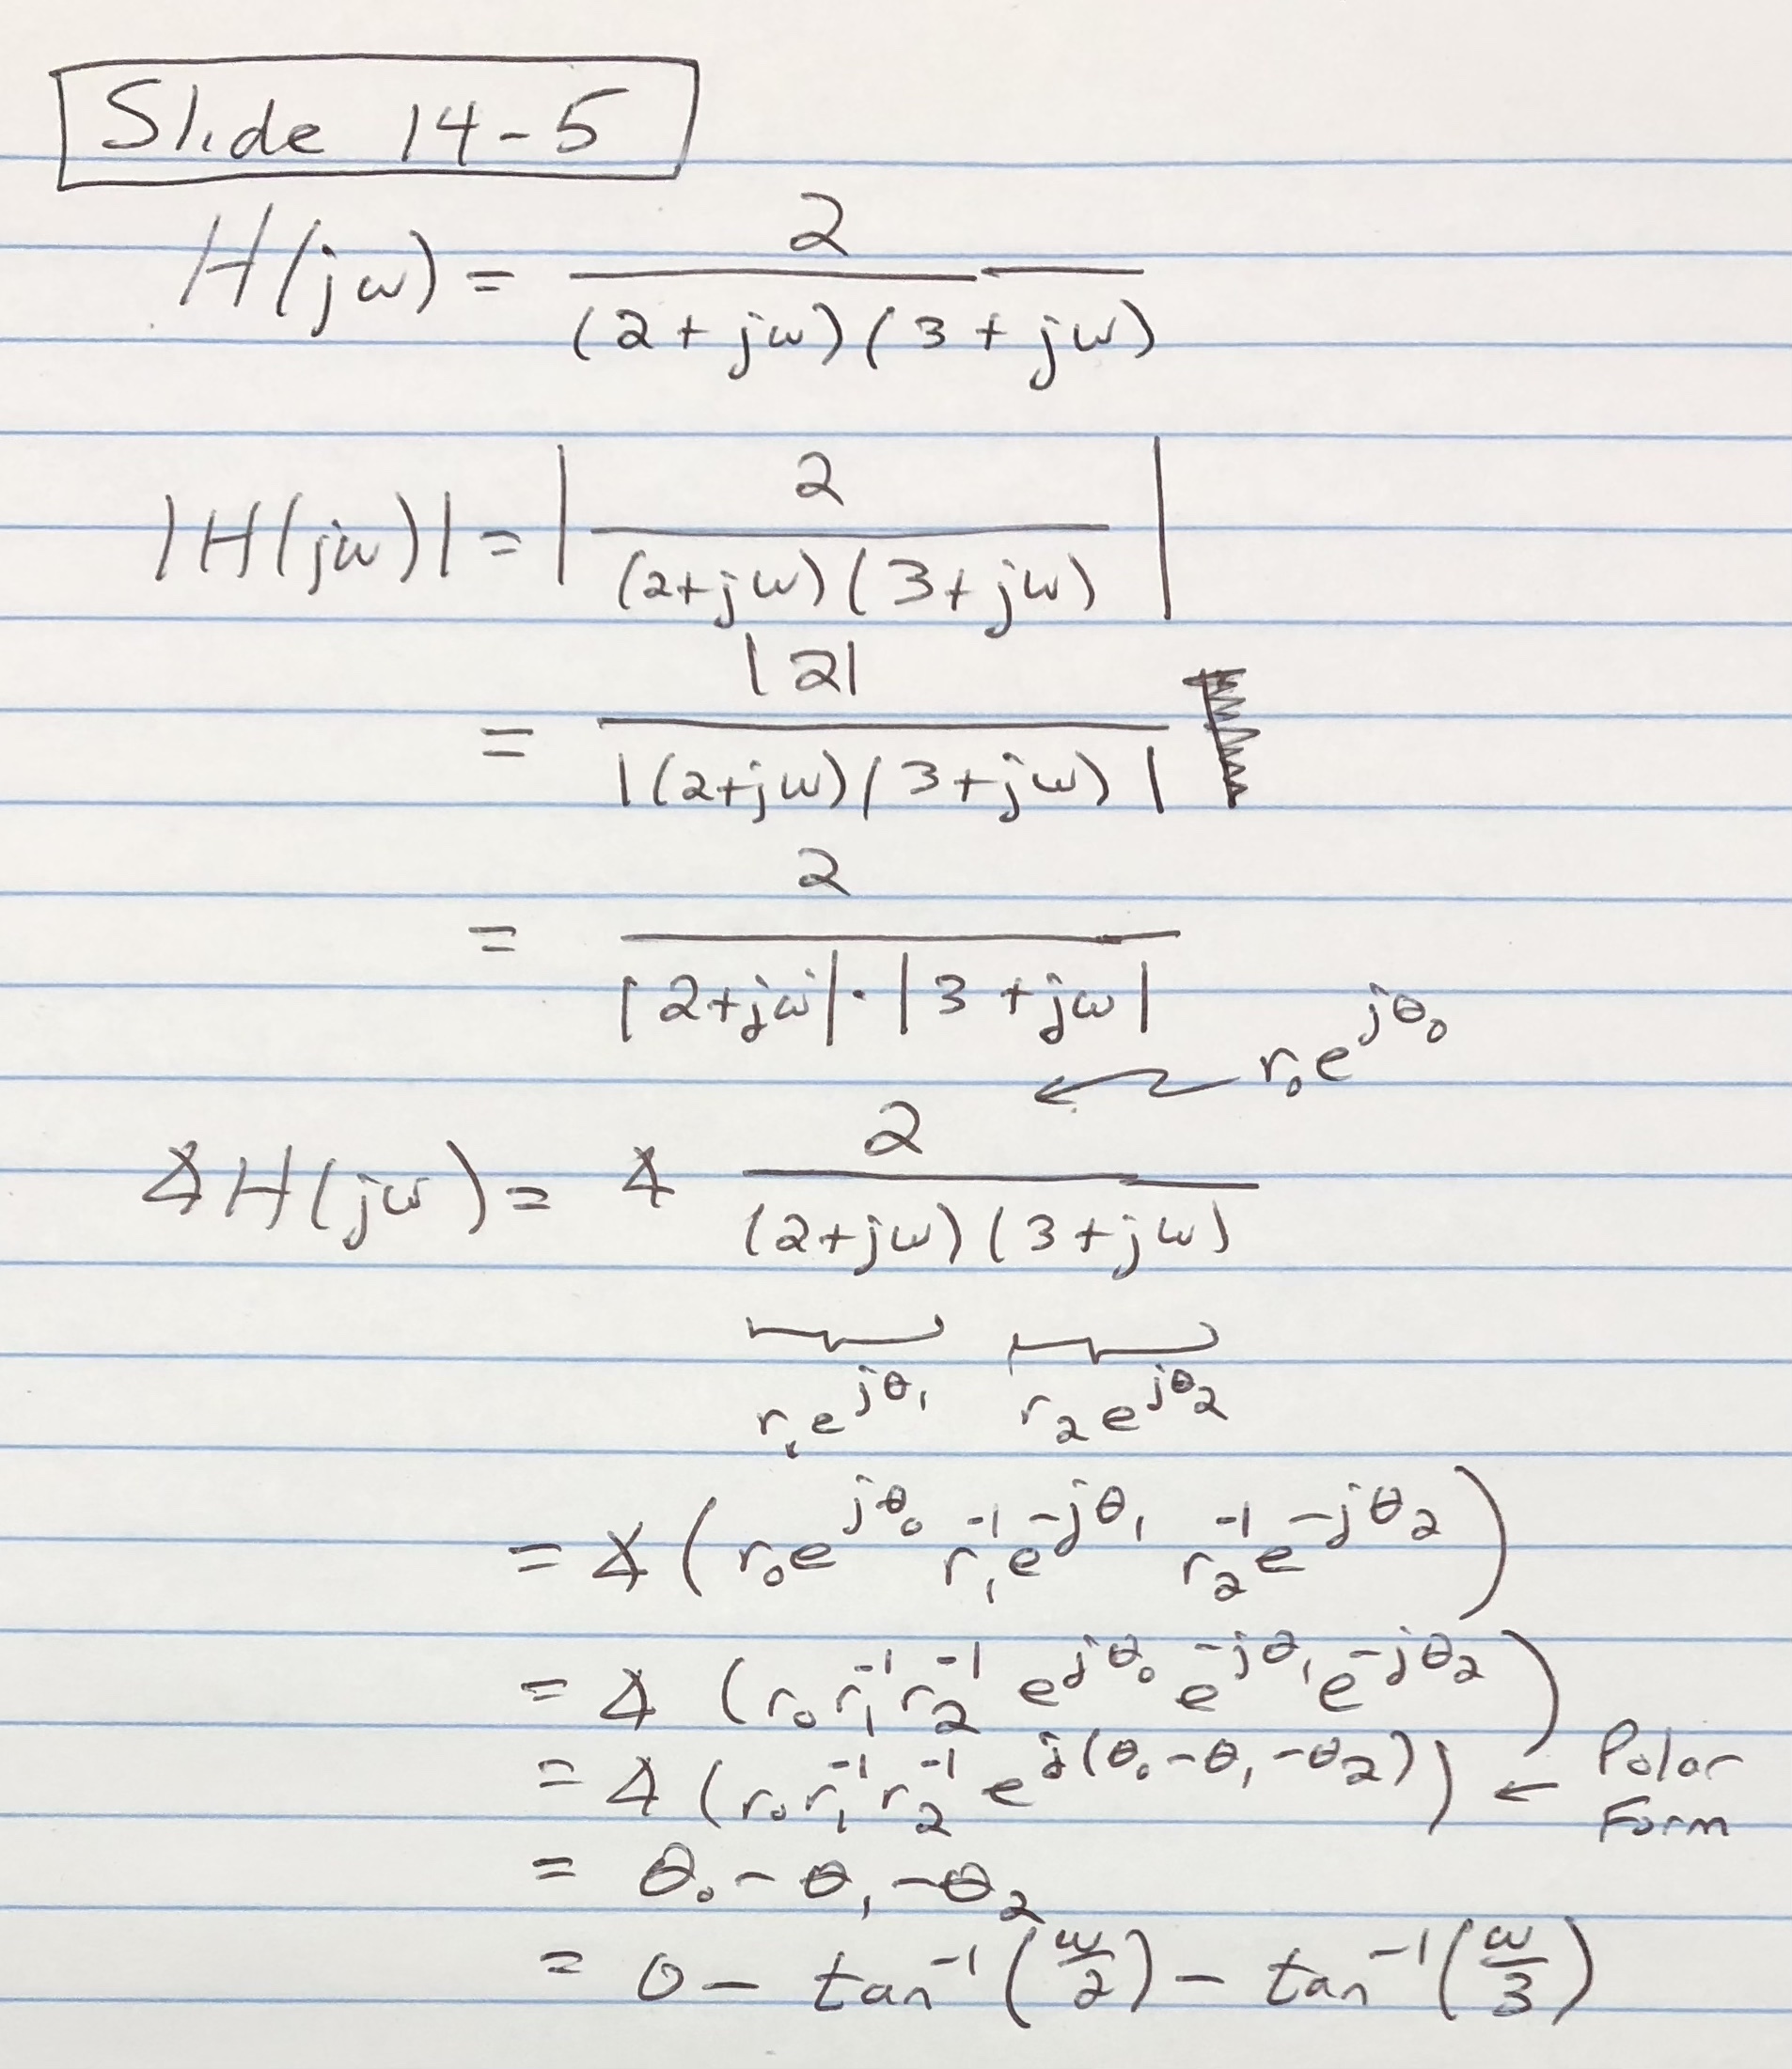 Slide 14-5
H(jω) = 2 / (2+jω)(3+jω)
|H(jω)| = | 2 / (2+jω)(3+jω) |
= |2| / |(2+jω)(3+jω)|
= 2 / |2+jω|·|3+jω|
r₀e^{jθ₀}
∡H(jω) = ∡ 2 / (2+jω)(3+jω)
r₁e^{jθ₁} r₂e^{jθ₂}
= ∡(r₀e^{jθ₀} r₁⁻¹e^{-jθ₁} r₂⁻¹e^{-jθ₂})
= ∡(r₀r₁⁻¹r₂⁻¹ e^{jθ₀} e^{-jθ₁} e^{-jθ₂})
= ∡(r₀r₁⁻¹r₂⁻¹ e^{j(θ₀-θ₁-θ₂)}) ← Polar Form
= θ₀-θ₁-θ₂
= 0 - tan⁻¹(ω/2) - tan⁻¹(ω/3)